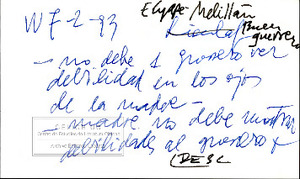 WF-2-93
Elyape Melillán
Buen guerrero
- no debe 1 guerrero ver
debilidad en los ojos
de la madre -
- madre no debe mostrar
debilidades al guerrero x
(DESC